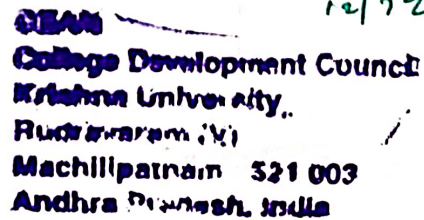 12/72
DEAN
College Development Council
Krishna University,
Rudravaram (V)
Machilipatnam 521 003
Andhra Pradesh, India